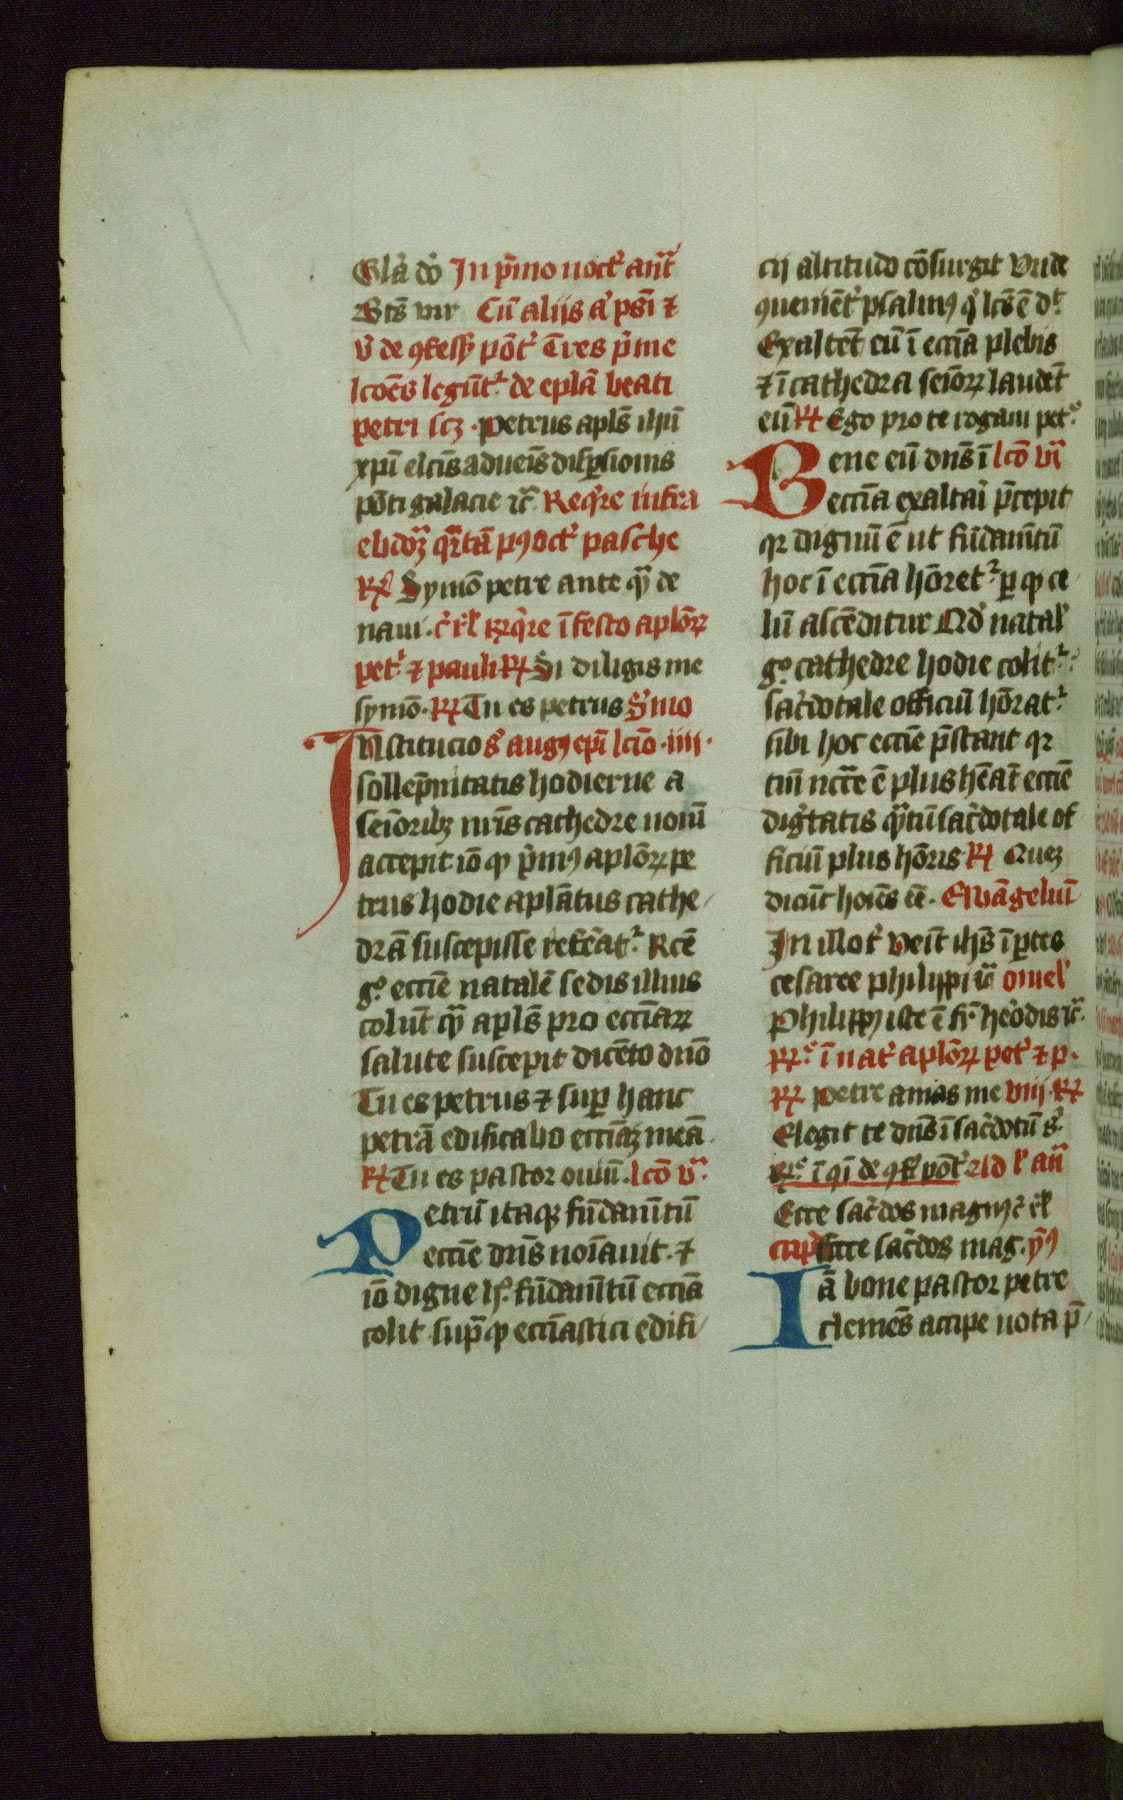 Gl'a do In p̄mo noct' ant̄
Bt̄s vir Cū aliis a' ps̄i ⁊
v̄ de ꝯfess' pōt' Tres p̄me
lcōēs legūt' de eplā beati
petri scꝫ · Petrus apl̄s ihū
xpī elcīs aduēis disp̄sionis
pōti galacie ⁊c̄ Req're infra
ebdoꝫ q̄rtā pꝰ oct' pasche
R⁊ Symō petre ante qᷓ de
naui · req're ī festo aplōꝝ
pet' ⁊ pauli R⁊ Si diligis me
symō · R⁊ Tu es petrus S'mo
Institucio s' augꝰ epī lcīo · iiii ·
sollēp̄nitatis hodierne a
seīoribꝫ nr̄is cathedre nomē
accepit iō qꝫ p̄mꝰ aplōꝝ pe
trus hodie aplātus cathe
drā suscepisse refeāt' Rcē
gͦ ecciē natalē sedis illius
colūt qᷓ apl̄s pro ecciaꝝ
salute suscepit dicēto dn̄o
Tu es petrus ⁊ sup̄ hanc
petrā edificabo ecciaꝫ meā
R⁊ Tu es pastor ouiū · lcō v̄
Petrū itaqꝫ fūdamītū
ecciē dn̄s noīauit · ⁊
iō digne h' fūdamītū ecciā
colit sup̄ qꝫ ecciastici edifi
cii altitudo cōsurgit Vnde
ꝯueniēt' psalmꝰ q' lc̄s ē dᵗ
Exaltēt eū ī ecciā plebis
⁊ ī cathedra seīoꝝ laudēt
eū R⁊ Ego pro te rogaui pet'
Bene eū dn̄s ī lcō vī
ecciā exaltai p̄cepit
qꝛ dignū ē ut fūdamītū
hoc ī ecciā hōret' per qꝫ ce
lū ascēditur Qd' natal'
gͦ cathedre hodie colit'
sac'dotale officiū hōrat'
sibi hoc ecciē p̄stant qꝛ
tm̄ nccē ē plus hēat ecciē
dig'tatis qᷓtū sac'dotale of
ficiū plus hōris R⁊ Quez
dicūt hoīes eē · Ewāgeliū
In illo t' veīt ihs̄ ī p̄tes
cesaree philippi ⁊c̄ omel'
Philippꝰ iste ē fr̄ he'odis ⁊c̄ ·
R⁊ ī nat' aplōꝝ pet' ⁊ p ·
R⁊ Petre amas me viii · R⁊
Elegit te dn̄s ī sac'dotū s'
ī qī de ꝯf' pōt' ald' l' an̄
Ecce sac'dos magnꝰ
Ecce sac'dos mag · ymꝰ
Iā bone pastor petre
clemēs accipe uota p̄